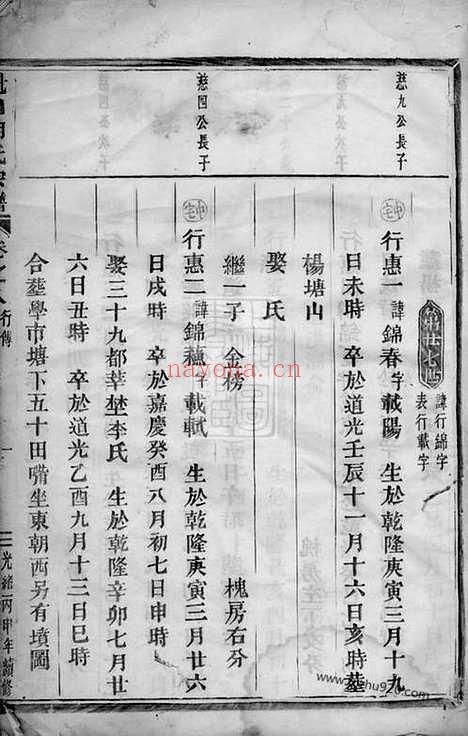 第廿七世
諱行錦字
表行載字
慈九公長子
行惠一諱錦春字載陽 生於乾隆庚寅三月十九
日未時 卒於道光壬辰十一月十六日亥時 塟
楊塘山
娶氏
繼一子 金榜 槐房右分
慈四公長子
行惠二諱錦穗字載賦 生於乾隆庚寅三月廿六
日戌時 卒於嘉慶癸酉八月初七日申時
娶三十九都莘埜李氏 生於乾隆辛卯七月廿
六日丑時 卒於道光乙酉九月十三日巳時
合塟學市塘下五十田嘴坐東朝酉另有墳圖
氏宗譜
行傳
一
光緒丙申年續修
www.nayona.cn